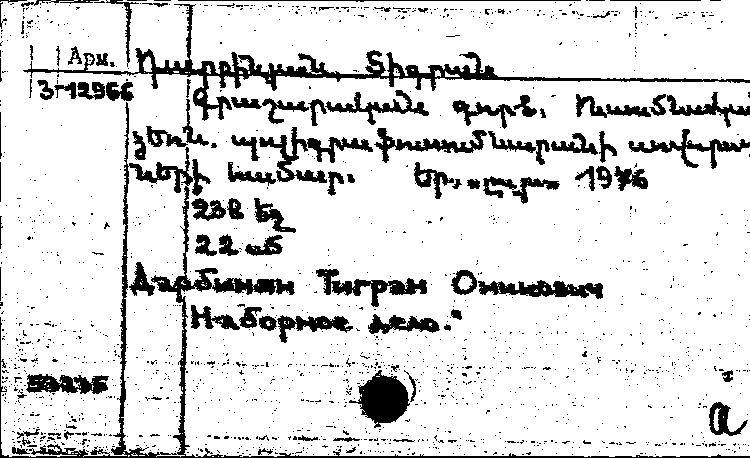 Арм. Դարբինյան, Տիգրան
3-12966
Գրաշարական գործ. Ուսումնակ
ձեռն. պոլիգրաֆուսումնարանի ավարտ
ների համար. Եր., «Լույս» 1976
238 եջ
22 սմ
Дарбинян Тигран Оникович
Наборное дело.
53235
a